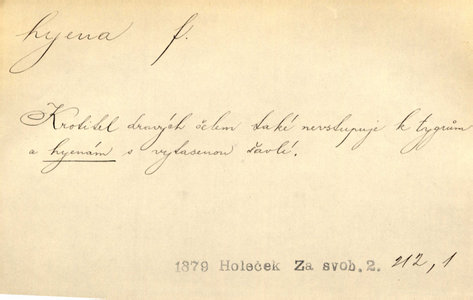 hyena f.
Krotitel dravých šelem také nevstupuje k tygrům
a hyenám s vytasenou šavlí.
1879 Holeček Za svob. 2. 212, 1